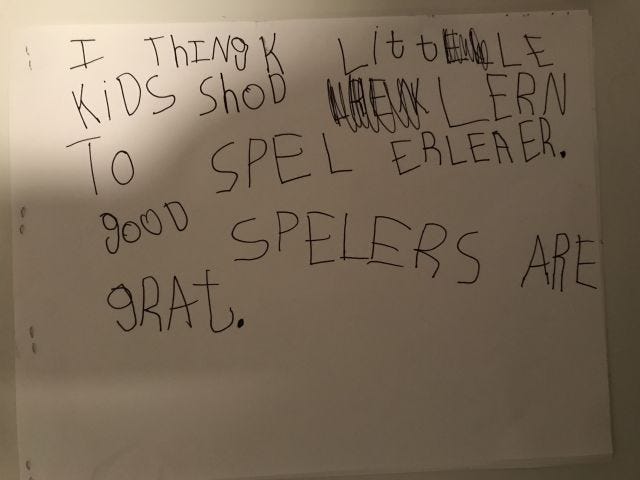 I ThINgK LittLE
KiDS ShoD LERN
To SPEL ERLEAER.
gooD SPELERS ARE
gRAt.